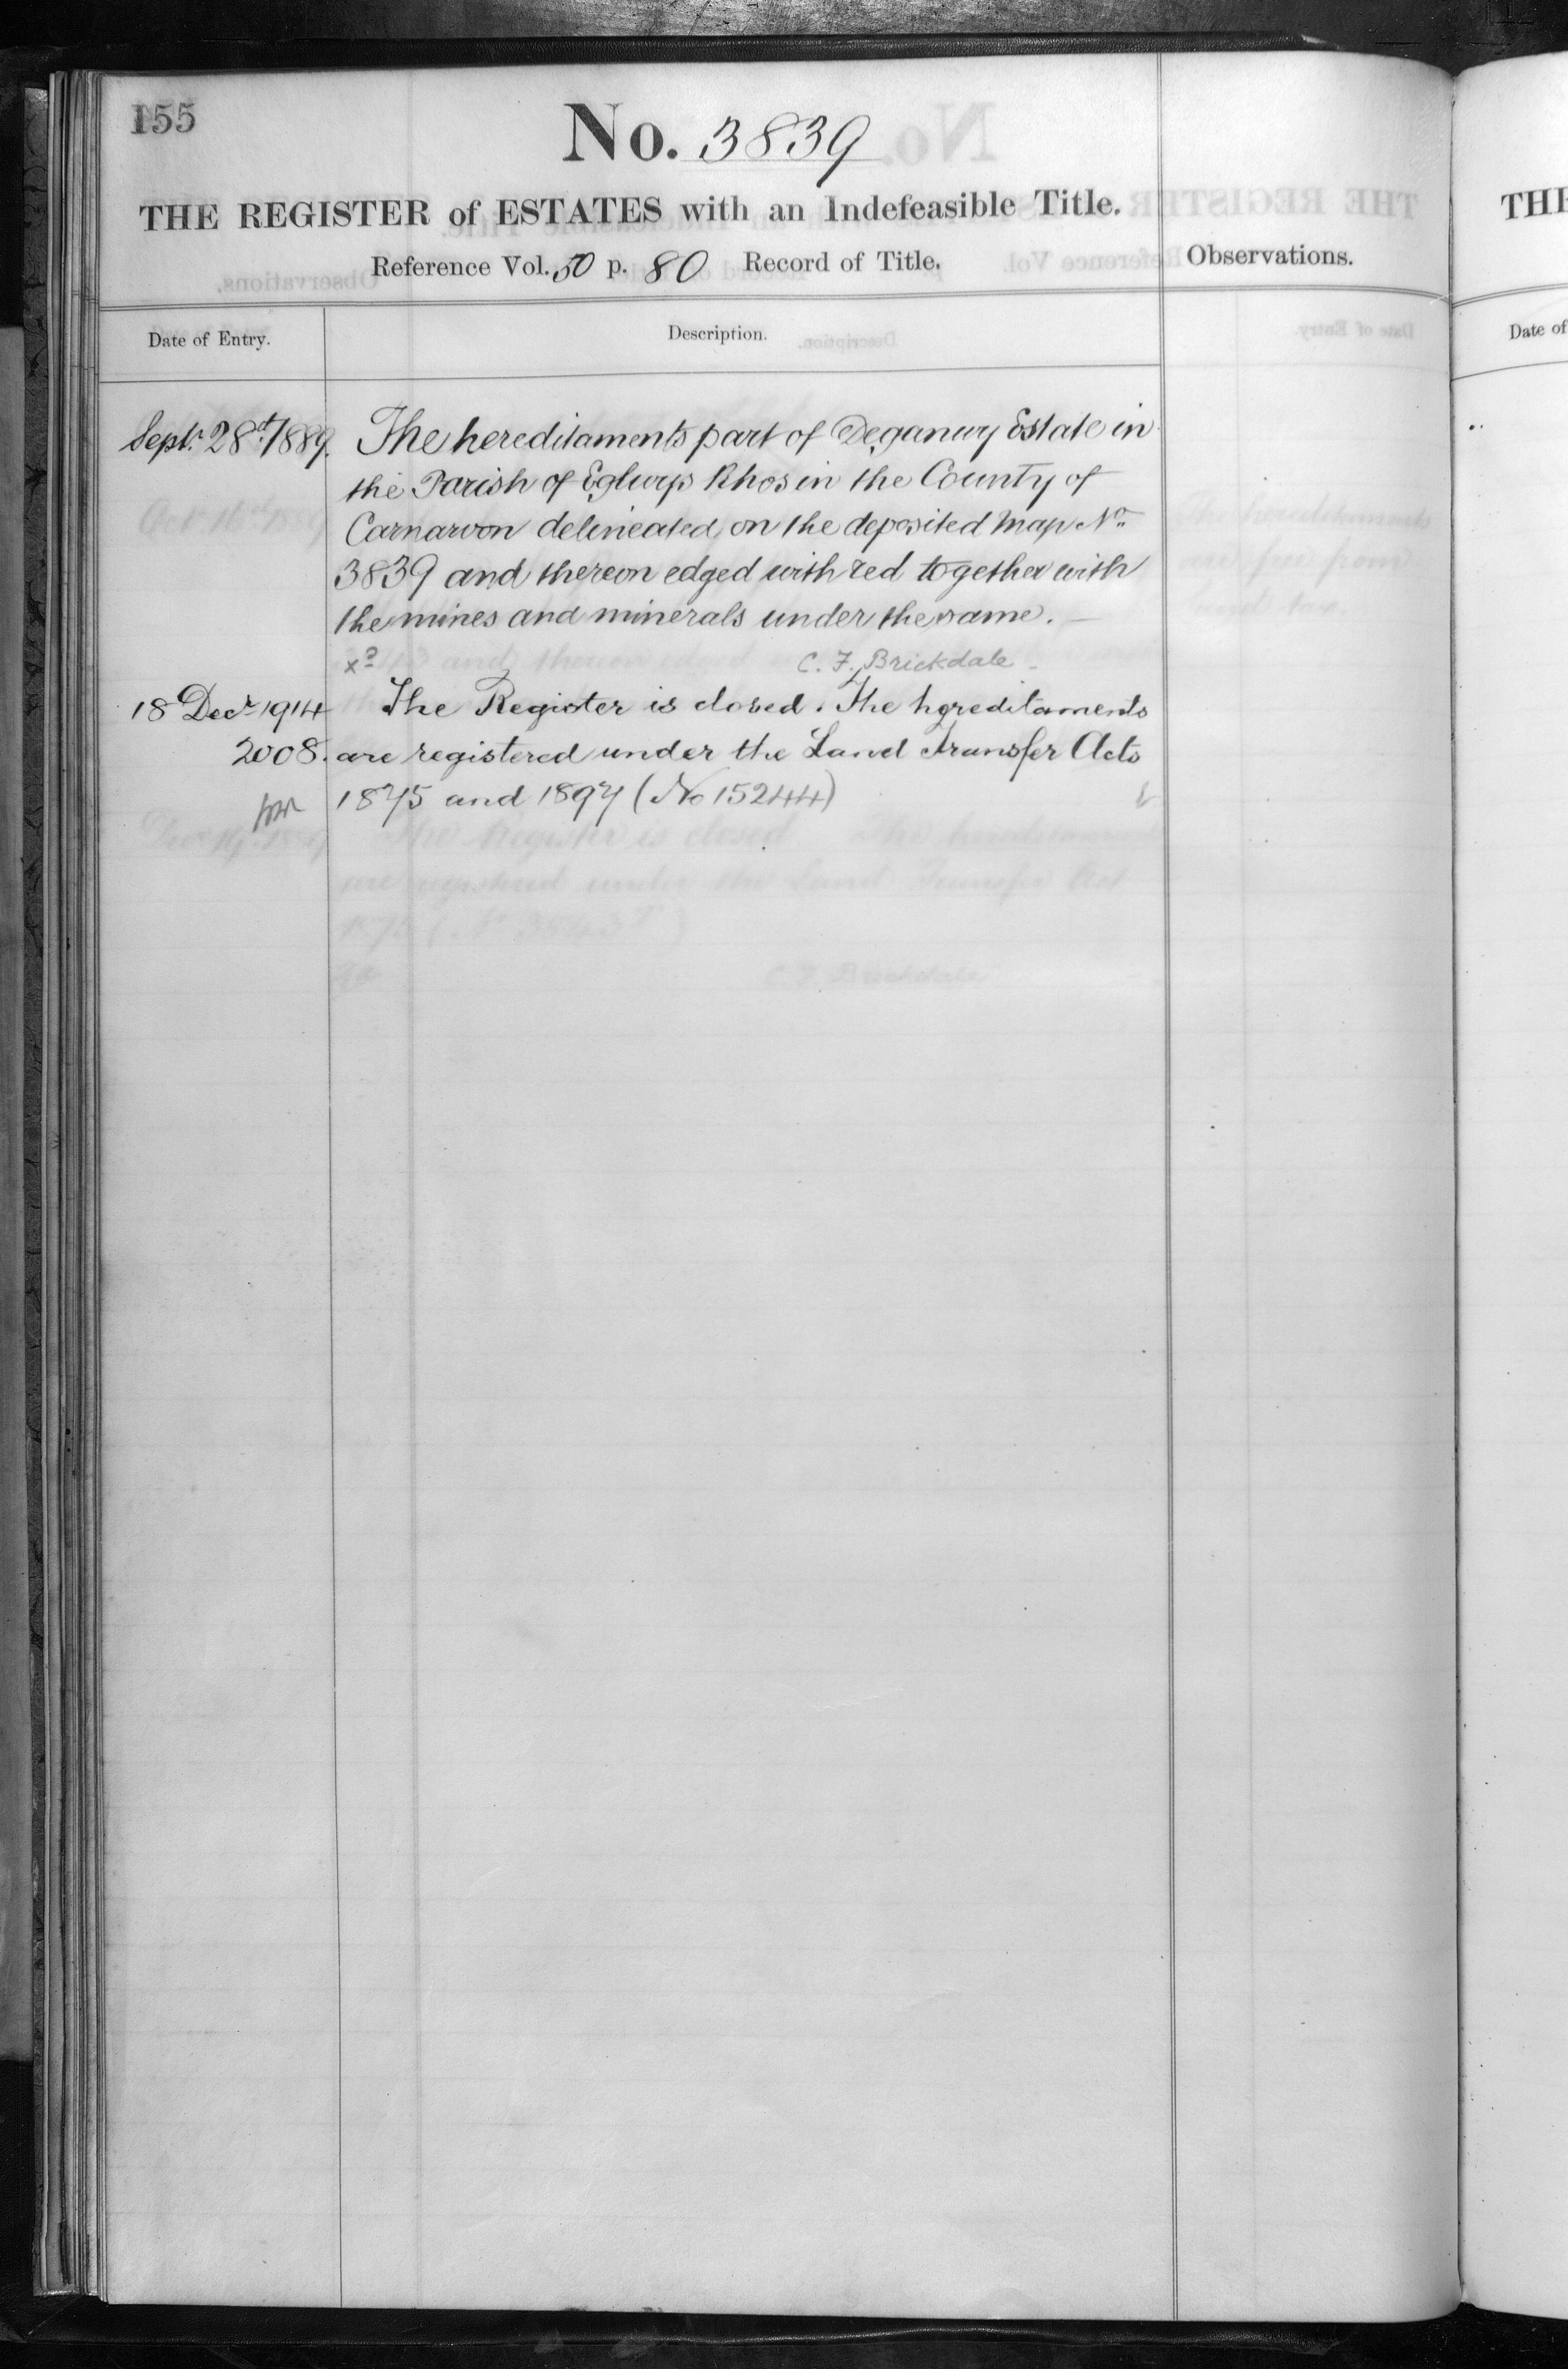 155
No. 3839
THE REGISTER of ESTATES with an Indefeasible Title.
Reference Vol. 50 p. 80 Record of Title.
Observations.
Date of Entry.
Description.
Sept. 28th 1889. The hereditaments part of Deganwy Estate in
the Parish of Eglwys Rhos in the County of
Carnarvon delineated on the deposited Map No.
3839 and thereon edged with red together with
the mines and minerals under the same. —
x? C. F. Brickdale
18 Decr 1914 The Register is closed. The hereditaments
2008. are registered under the Land Transfer Acts
1875 and 1897 (No 15244)
THE
Date of